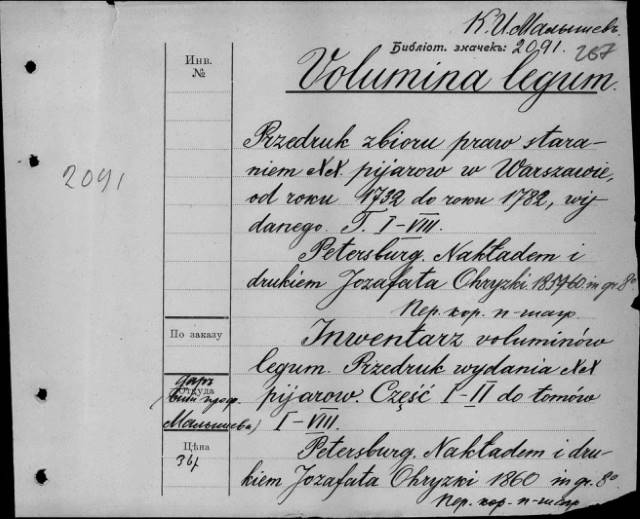 К. И. Малышевъ.
Библіот. значекъ: 2091.
267
Инв.
№
Volumina legum.
2091
Przedruk zbioru praw stara-
niem XX. pijarow w Warszawie,
od roku 1732 do roku 1782, wy
danego. T. I-VIII.
Petersburg. Nakładem i
drukiem Jozafata Ohryzki. 1859-60. in gr. 8º
Пер. кор. п-шагр.
По заказу
Inwentarz voluminów
legum. Przedruk wydania XX
pijarow. Część I-II do tomów
I-VIII.
Откуда
даръ
проф.
Малышева)
Цѣна
Petersburg. Nakładem i dru-
kiem Jozafata Ohryzki 1860 in gr. 8º
Пер. кор. п-шагр